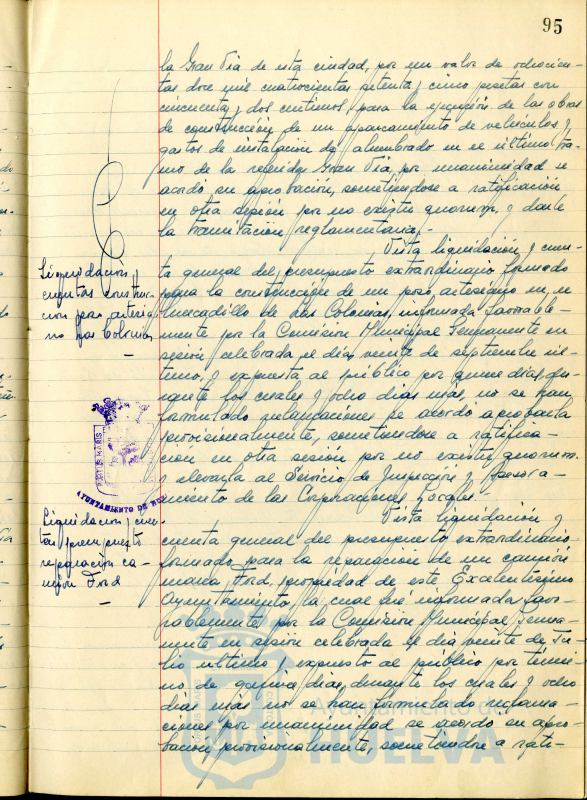 95
la Gran Vía de esta ciudad, por un valor de ochocien-
tas doce mil cuatrocientas setenta y cinco pesetas con
cincuenta y dos centimos, para la ejecución de las obras
de construcción de un aparcamiento de vehículos y
gastos de instalación de alumbrado en el último tra-
mo de la referida Gran Vía, por unanimidad se
acordó su aprobación, sometiendose a ratificación
en otra sesión por no existir quorum, y darle
la tramitación reglamentaria.-
Vista liquidación y cuen-
Liquidación y
cuentas construc-
cion pozo artesia-
no las Colonias
-
ta general del presupuesto extraordinario formado
para la construcción de un pozo artesiano en el
mercadillo de las Colonias, informada favorable-
mente por la Comisión Municipal Permanente en
sesión celebrada el día veinte de septiembre úl-
timo, y expuesta al público por quince días du-
rante los cuales y ocho dias más, no se han
formulado reclamaciones se acordó aprobarla
provisionalmente, sometiendose a ratifica-
cion en otra sesion por no existir quorum
y elevarla al Servicio de Inspección y Asesora-
miento de las Corporaciones Locales.-
AYUNTAMIENTO DE HUELVA
Vista liquidación y
Liquidacion y cuen-
tas presupuesto
reparación ca-
mión Ford
-
cuenta general del presupuesto extraordinario
formado para la reparación de un camión
marca Ford, propiedad de este Excelentisimo
Ayuntamiento, la cual fué informada favo-
rablemente por la Comisión Municipal Perma-
nente en sesión celebrada el día veinte de Ju-
lio ultimo y expuesto al público por térmi-
no de quince dias, durante los cuales y ocho
dias más no se han formulado reclama-
ciones por unanimidad se acordo su apro-
bación provisionalmente, sometiendose a rati-
Ayuntamiento de
HUELVA